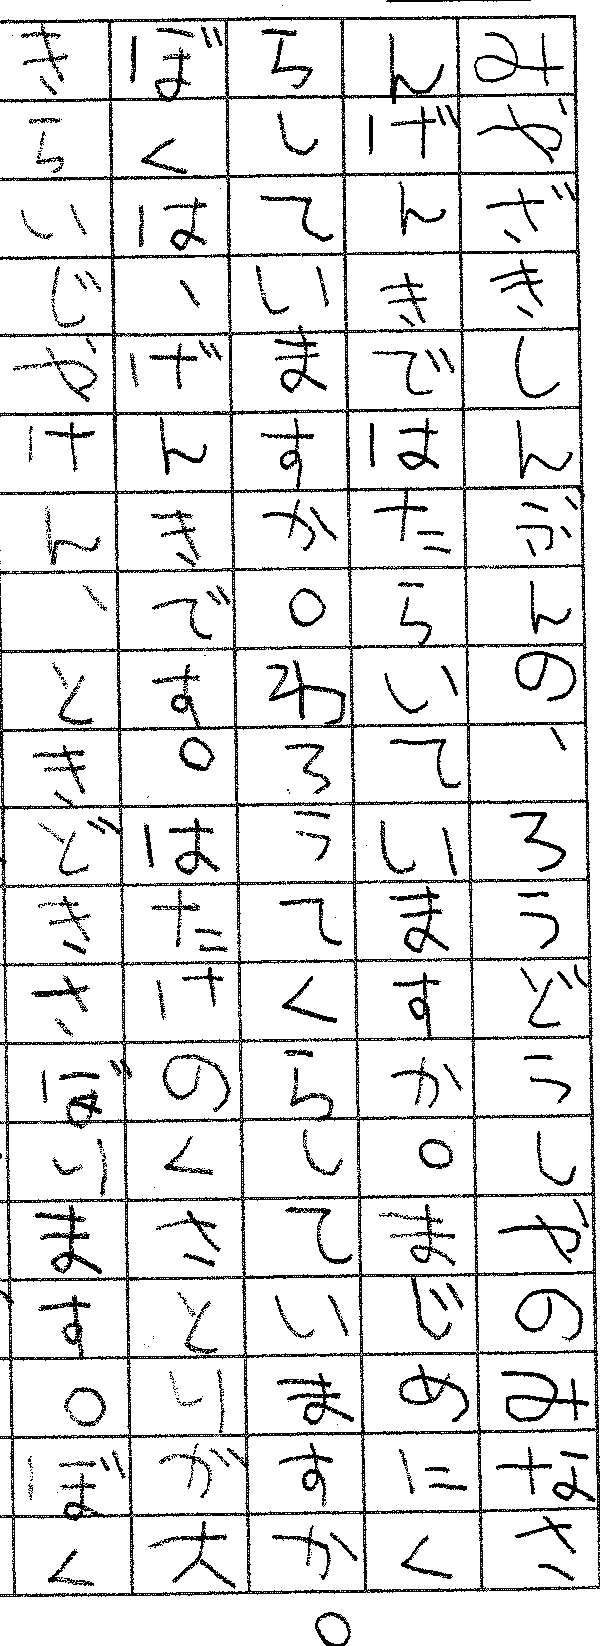 みやざきしんぶんの、ろうどうしゃのみなさ
んげんきではたらいていますか。まじめにく
らしていますか。わろうてくらしていますか。
ぼくは、げんきです。はたけのくさとりが大
きらいじやけん、ときどきさぼります。ぼく